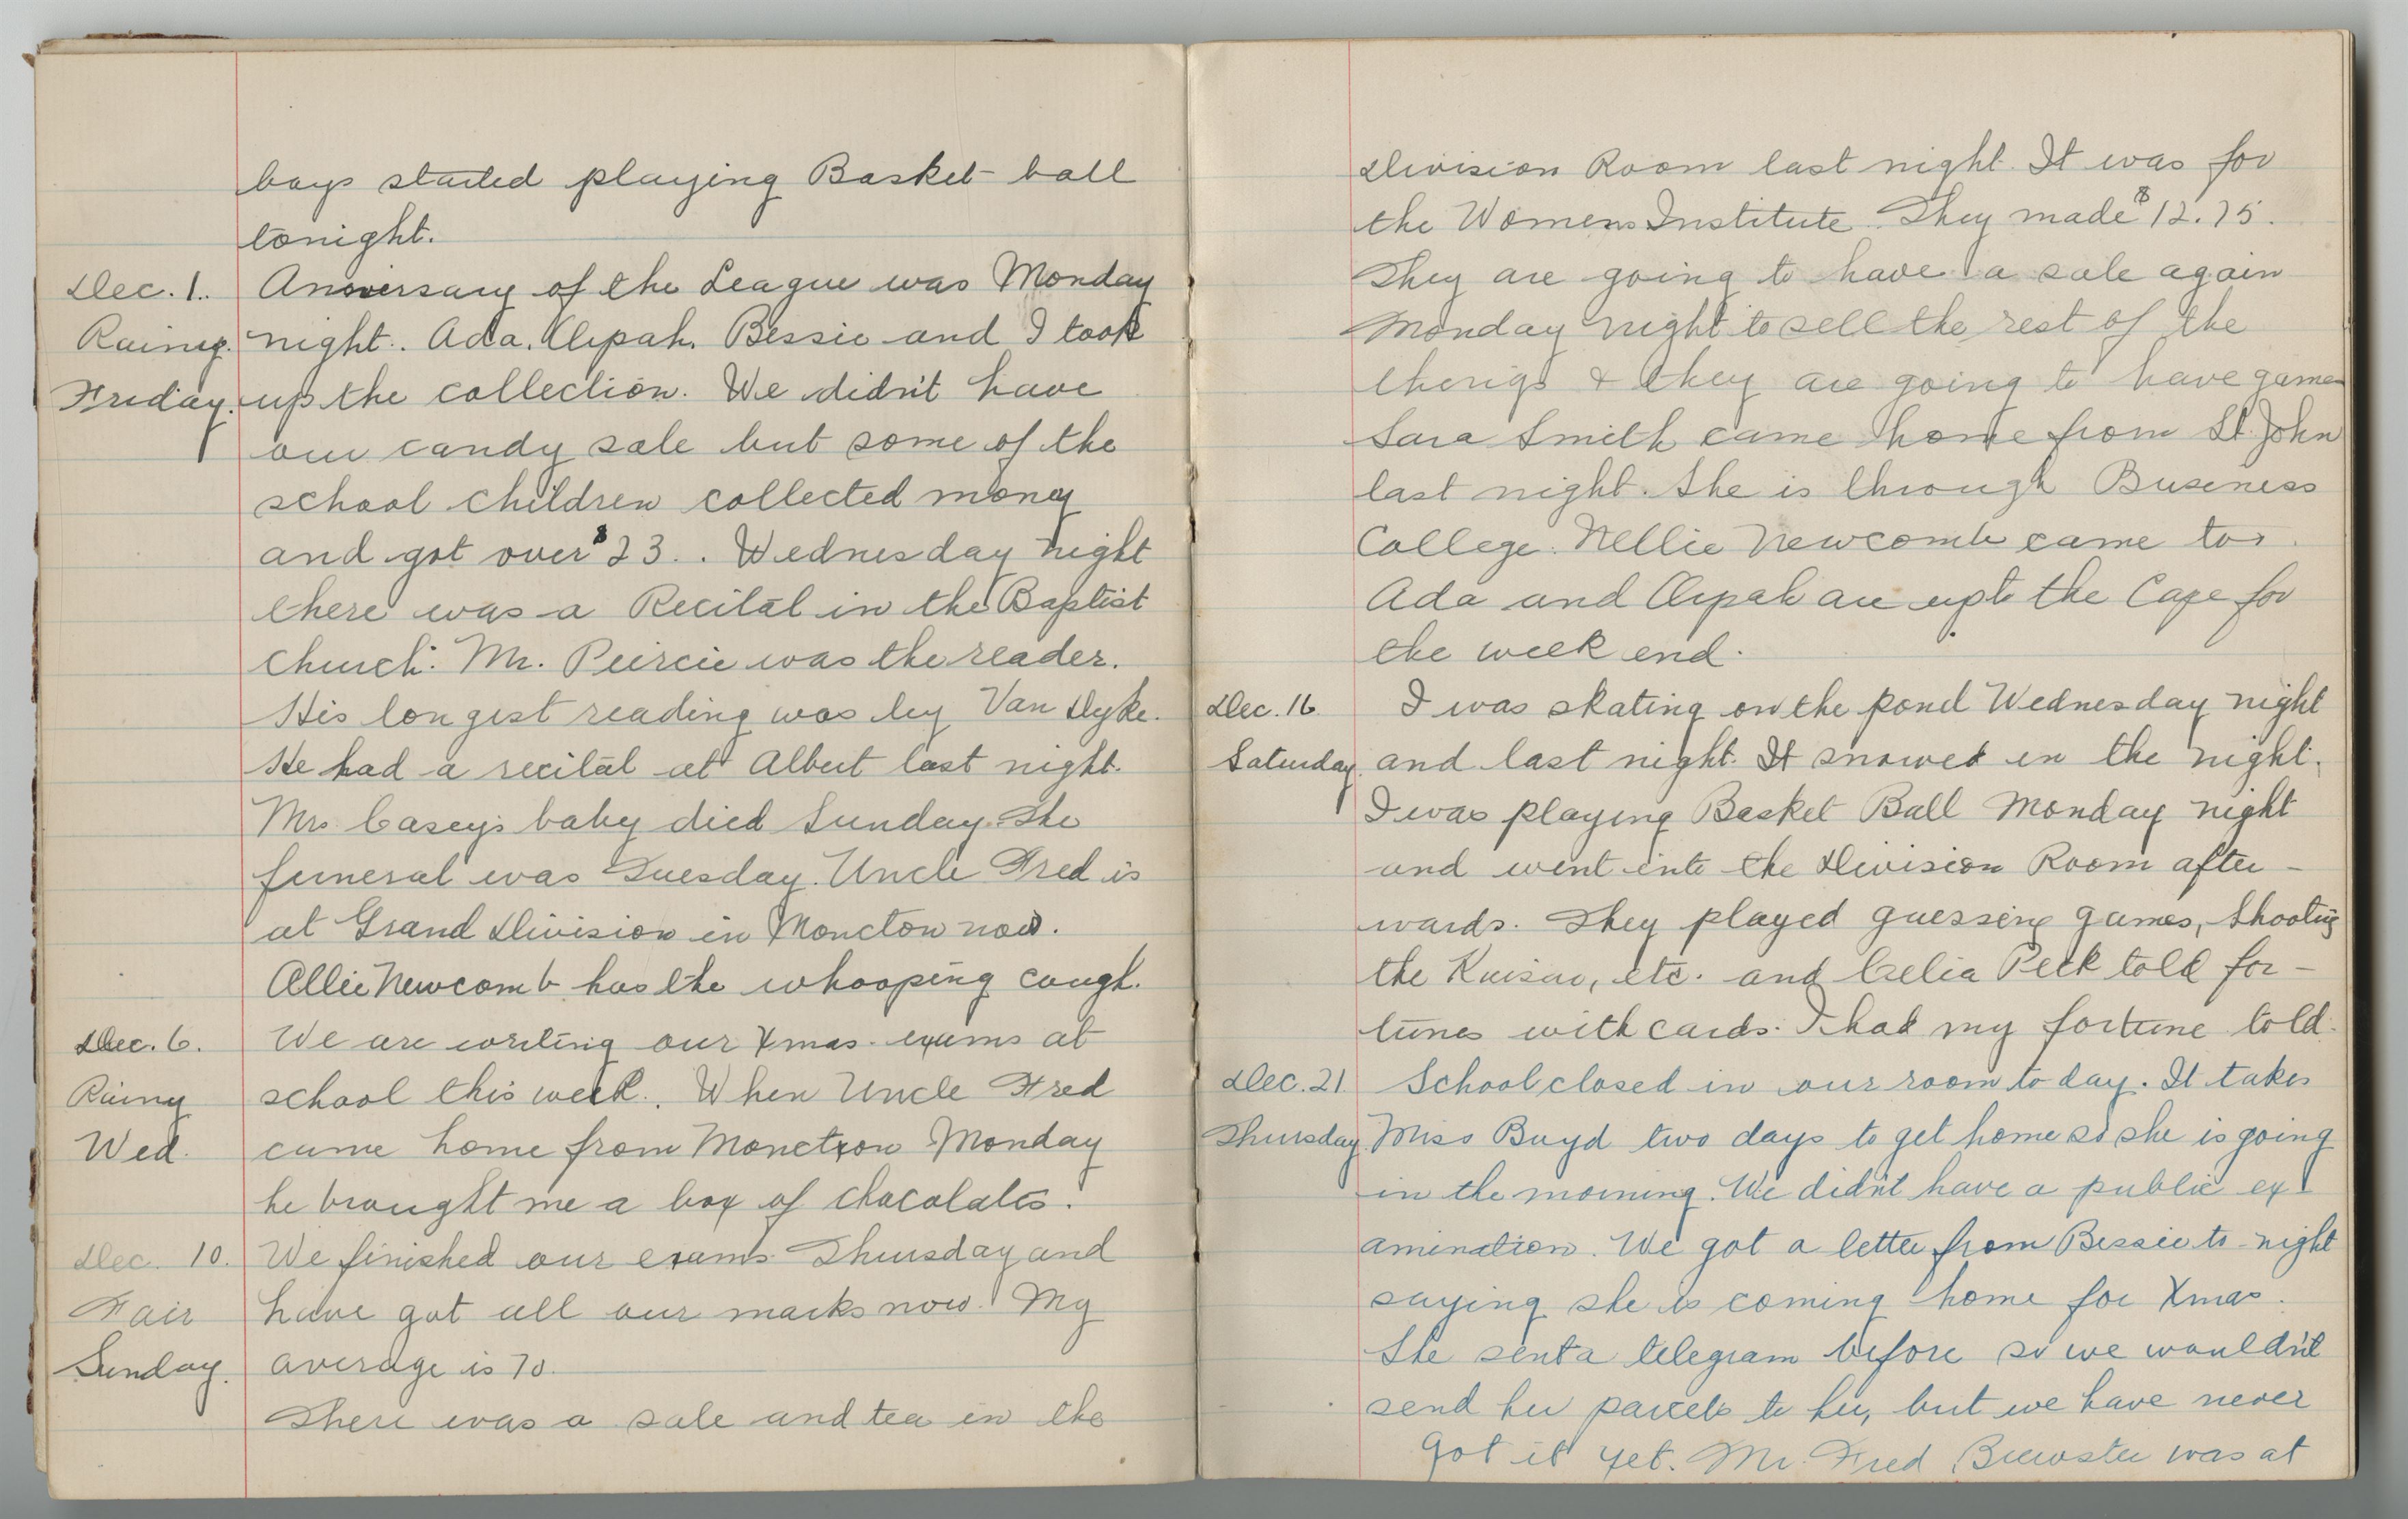 boys started playing Basket ball
tonight.
Dec. 1. Anniversary of the League was Monday
Rainy. night. Ada, Orpah, Bessie and I took
Friday. up the collection. We didn't have
our candy sale but some of the
school children collected money
and got over $23.. Wednesday night
there was a Recital in the Baptist
Church. Mr. Peircie was the reader.
His longest reading was by Van Dyke.
He had a recital at Albert last night.
Mrs. Casey's baby died Sunday. The
funeral was Tuesday. Uncle Fred is
at Grand Division in Moncton now.
Allie Newcomb has the whooping cough.
Dec. 6. We are writing our Xmas. exams at
Rainy school this week.. When Uncle Fred
Wed. came home from Moncton Monday
he brought me a box of chocolates.
Dec. 10. We finished our exams Thursday and
Fair have got all our marks now. My
Sunday. average is 70.
There was a sale and tea in the
Division Room last night. It was for
the Womens Institute. They made $12.75.
They are going to have a sale again
Monday night to sell the rest of the
things & they are going to have games
Sara Smith came home from St. John
last night. She is through Business
College. Nellie Newcomb came too.
Ada and Orpah are up to the Cape for
the week end.
Dec. 16. I was skating on the pond Wednesday night
Saturday. and last night. It snowed in the night.
I was playing Basket Ball Monday night
and went into the Division Room after-
wards. They played guessing games, Shooting
the Kaiser, etc. and Celia Peck told for-
tunes with cards. I had my fortune told.
Dec. 21. School closed in our room to day. It takes
Thursday. Miss Buyd two days to get home so she is going
in the morning. We didn't have a public ex
amination. We got a letter from Bessie to-night
saying she is coming home for Xmas.
She sent a telegram before so we wouldn't
send her parcels to her, but we have never
got it yet. Mr. Fred Brewster was at